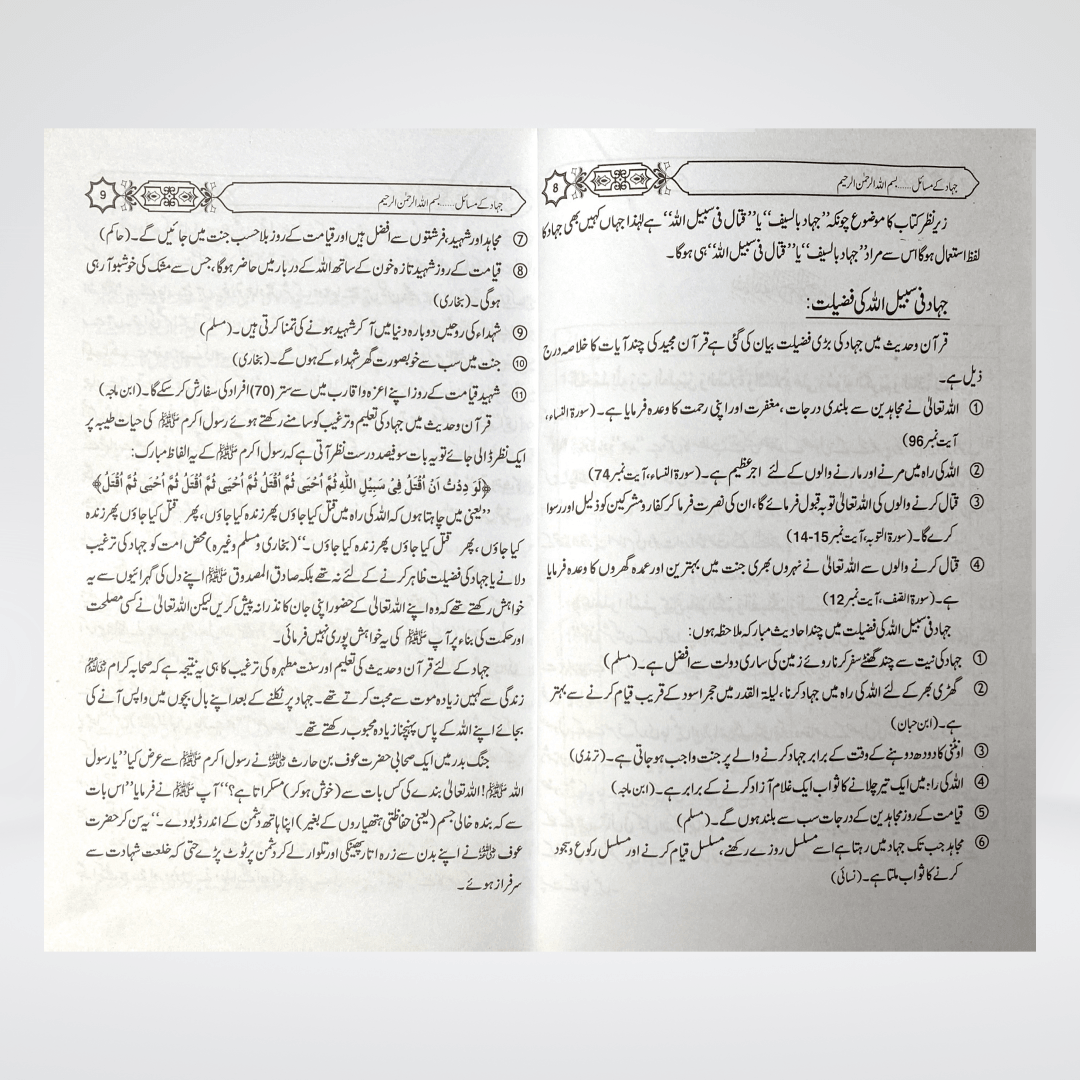 جہاد کے مسائل......بسم اللہ الرحمٰن الرحیم
8
زیر نظر کتاب کا موضوع چونکہ ’’جہاد بالسیف‘‘ یا ’’قتال فی سبیل اللہ‘‘ ہے لہٰذا جہاں کہیں بھی جہاد کا
لفظ استعمال ہوگا اس سے مراد ’’جہاد بالسیف‘‘ یا ’’قتال فی سبیل اللہ‘‘ ہی ہوگا۔
جہاد فی سبیل اللہ کی فضیلت:
قرآن وحدیث میں جہاد کی بڑی فضیلت بیان کی گئی ہے قرآن مجید کی چند آیات کا خلاصہ درج
ذیل ہے۔
① اللہ تعالیٰ نے مجاہدین سے بلندی درجات، مغفرت اور اپنی رحمت کا وعدہ فرمایا ہے۔ (سورۃ النساء،
آیت نمبر 96)
② اللہ کی راہ میں مرنے اور مارنے والوں کے لئے اجر عظیم ہے۔ (سورۃ النساء، آیت نمبر 74)
③ قتال کرنے والوں کی اللہ تعالیٰ توبہ قبول فرمائے گا، ان کی نصرت فرما کر کفار و مشرکین کو ذلیل اور رسوا
کرے گا۔ (سورۃ التوبہ، آیت نمبر 15-14)
④ قتال کرنے والوں سے اللہ تعالیٰ نے نہروں بھری جنت میں بہترین اور عمدہ گھروں کا وعدہ فرمایا
ہے۔ (سورۃ الصف، آیت نمبر 12)
جہاد فی سبیل اللہ کی فضیلت میں چند احادیث مبارکہ ملاحظہ ہوں:
① جہاد کی نیت سے چند گھنٹے سفر کرنا روئے زمین کی ساری دولت سے افضل ہے۔ (مسلم)
② گھڑی بھر کے لئے اللہ کی راہ میں جہاد کرنا، لیلۃ القدر میں حجر اسود کے قریب قیام کرنے سے بہتر
ہے۔ (ابن حبان)
③ اونٹنی کا دودھ دوہنے کے وقت کے برابر جہاد کرنے والے پر جنت واجب ہوجاتی ہے۔ (ترمذی)
④ اللہ کی راہ میں ایک تیر چلانے کا ثواب ایک غلام آزاد کرنے کے برابر ہے۔ (ابن ماجہ)
⑤ قیامت کے روز مجاہدین کے درجات سب سے بلند ہوں گے۔ (مسلم)
⑥ مجاہد جب تک جہاد میں رہتا ہے اسے مسلسل روزے رکھنے، مسلسل قیام کرنے اور مسلسل رکوع و سجود
کرنے کا ثواب ملتا ہے۔ (نسائی)
جہاد کے مسائل......بسم اللہ الرحمٰن الرحیم
9
⑦ مجاہد اور شہید، فرشتوں سے افضل ہیں اور قیامت کے روز بلا حساب جنت میں جائیں گے۔ (حاکم)
⑧ قیامت کے روز شہید تازہ خون کے ساتھ اللہ کے دربار میں حاضر ہوگا، جس سے مشک کی خوشبو آ رہی
ہوگی۔ (بخاری)
⑨ شہداء کی روحیں دوبارہ دنیا میں آ کر شہید ہونے کی تمنا کرتی ہیں۔ (مسلم)
⑩ جنت میں سب سے خوبصورت گھر شہداء کے ہوں گے۔ (بخاری)
⑪ شہید قیامت کے روز اپنے اعزہ و اقارب میں سے ستر (70) افراد کی سفارش کرسکے گا۔ (ابن ماجہ)
قرآن وحدیث میں جہاد کی تعلیم و ترغیب کو سامنے رکھتے ہوئے رسول اکرم ﷺ کی حیات طیبہ پر
ایک نظر ڈالی جائے تو یہ بات سو فیصد درست نظر آتی ہے کہ رسول اکرم ﷺ کے یہ الفاظ مبارک:
﴿لَوَدِدْتُ اَنْ اُقْتَلُ فِیْ سَبِیْلِ اللّٰہِ ثُمَّ اُحْیٰی ثُمَّ اُقْتَلُ ثُمَّ اُحْیٰی ثُمَّ اُقْتَلُ ثُمَّ اُحْیٰی ثُمَّ اُقْتَلُ﴾
’’یعنی میں چاہتا ہوں کہ اللہ کی راہ میں قتل کیا جاؤں پھر زندہ کیا جاؤں، پھر قتل کیا جاؤں پھر زندہ
کیا جاؤں، پھر قتل کیا جاؤں پھر زندہ کیا جاؤں۔‘‘ (بخاری و مسلم وغیرہ) محض امت کو جہاد کی ترغیب
دلانے یا جہاد کی فضیلت ظاہر کرنے کے لئے نہ تھے بلکہ صادق المصدوق ﷺ اپنے دل کی گہرائیوں سے یہ
خواہش رکھتے تھے کہ وہ اپنے اللہ تعالیٰ کے حضور اپنی جان کا نذرانہ پیش کریں لیکن اللہ تعالیٰ نے کسی مصلحت
اور حکمت کی بناء پر آپ ﷺ کی یہ خواہش پوری نہیں فرمائی۔
جہاد کے لئے قرآن وحدیث کی تعلیم اور سنت مطہرہ کی ترغیب کا ہی یہ نتیجہ ہے کہ صحابہ کرام ﷢
زندگی سے کہیں زیادہ موت سے محبت کرتے تھے۔ جہاد پر نکلنے کے بعد اپنے بال بچوں میں واپس آنے کی
بجائے اپنے اللہ کے پاس پہنچنا زیادہ محبوب رکھتے تھے۔
جنگ بدر میں ایک صحابی حضرت عوف بن حارث نے رسول اکرم ﷺ سے عرض کیا ’’یا رسول
اللہ ﷺ! اللہ تعالیٰ بندے کی کس بات سے (خوش ہوکر) مسکراتا ہے؟‘‘ آپ ﷺ نے فرمایا ’’اس بات
سے کہ بندہ خالی جسم (یعنی حفاظتی ہتھیاروں کے بغیر) اپنا ہاتھ دشمن کے اندر ڈبو دے۔‘‘ یہ سن کر حضرت
عوف نے اپنے بدن سے زرہ اتار پھینکی اور تلوار لے کر دشمن پر ٹوٹ پڑے حتی کہ خلعت شہادت سے
سرفراز ہوئے۔